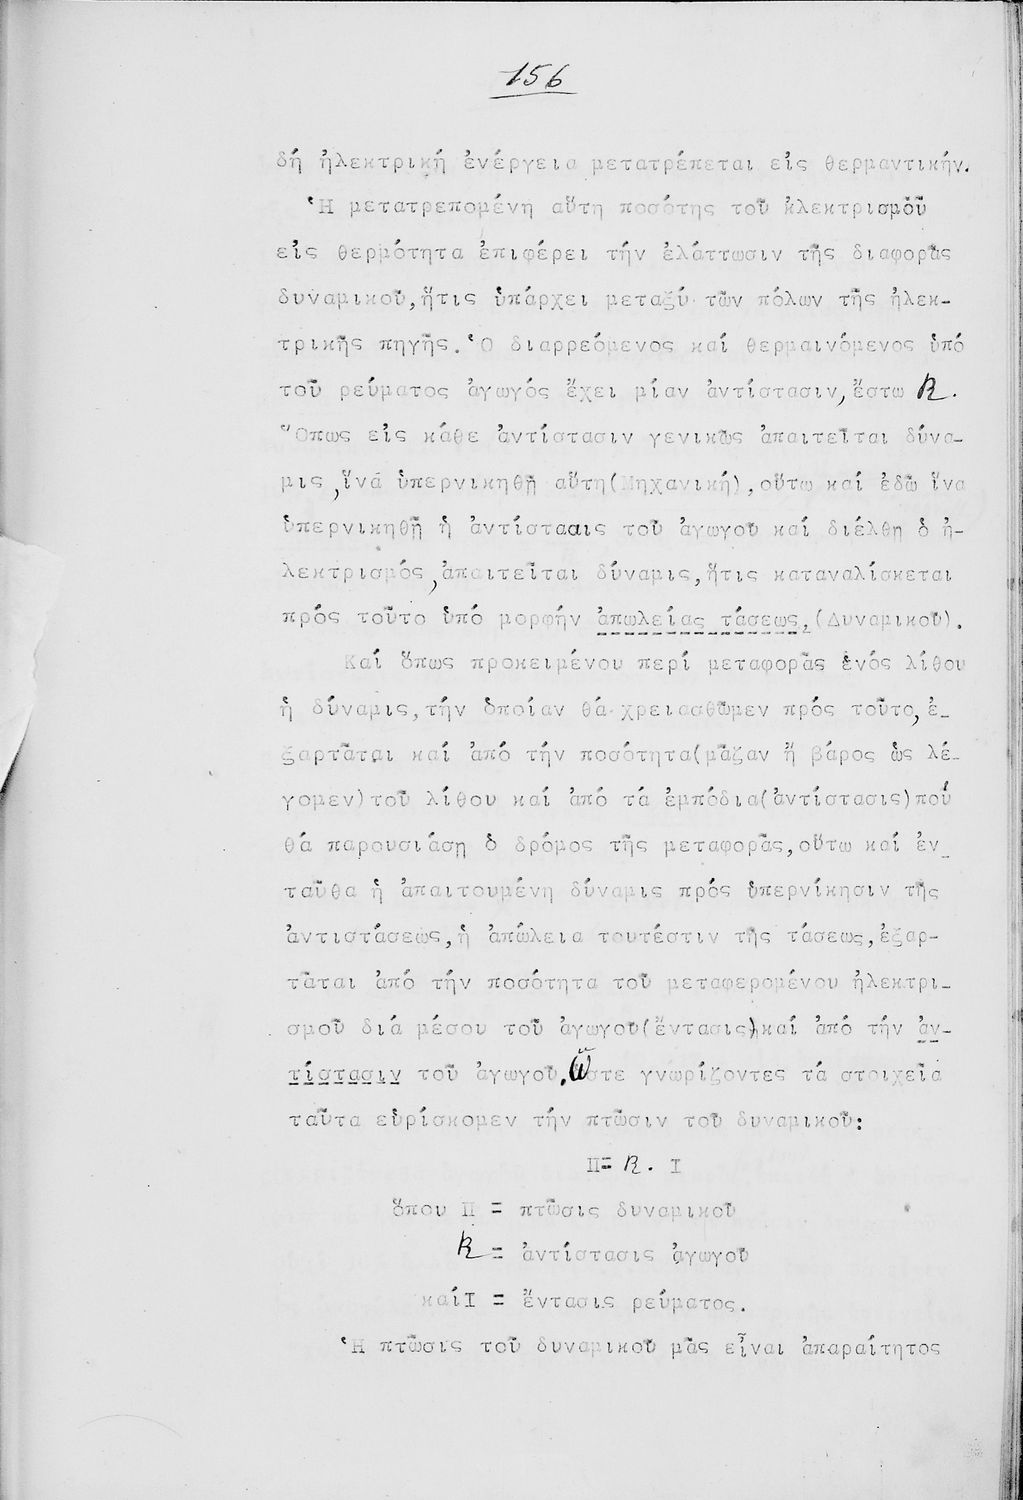 156
δή ἠλεκτρική ἐνέργεια μετατρέπεται εἰς θερμαντικήν.
Ἡ μετατρεπομένη αὕτη ποσότης τοῦ ἠλεκτρισμοῦ
εἰς θερμότητα ἐπιφέρει τήν ἐλάττωσιν τῆς διαφορᾶς
δυναμικοῦ,ἥτις ὑπάρχει μεταξύ τῶν πόλων τῆς ἠλεκ-
τρικῆς πηγῆς.Ὁ διαρρεόμενος καί θερμαινόμενος ὑπό
τοῦ ρεύματος ἀγωγός ἔχει μίαν ἀντίστασιν,ἔστω R.
Ὅπως εἰς κάθε ἀντίστασιν γενικῶς ἀπαιτεῖται δύνα-
μις,ἵνα ὑπερνικηθῇ αὕτη(Μηχανική),οὕτω καί ἐδῶ ἵνα
ὑπερνικηθῇ ἡ ἀντίστααις τοῦ ἀγωγοῦ καί διέλθη ὁ ἠ-
λεκτρισμός,ἀπαιτεῖται δύναμις,ἥτις καταναλίσκεται
πρός τοῦτο ὑπό μορφήν ἀπωλείας τάσεως,(Δυναμικοῦ).
Καί ὅπως προκειμένου περί μεταφορᾶς ἑνός λίθου
ἡ δύναμις,τήν ὁποίαν θά χρειασθῶμεν πρός τοῦτο,ἐ-
ξαρτᾶται καί ἀπό τήν ποσότητα(μᾶζαν ἤ βάρος ὡς λέ-
γομεν)τοῦ λίθου καί ἀπό τά ἐμπόδια(ἀντίστασις)πού
θά παρουσιάση ὁ δρόμος τῆς μεταφορᾶς,οὕτω καί ἐν-
ταῦθα ἡ ἀπαιτουμένη δύναμις πρός ὑπερνίκησιν τῆς
ἀντιστάσεως,ἡ ἀπώλεια τουτέστιν τῆς τάσεως,ἐξαρ-
τᾶται ἀπό τήν ποσότητα τοῦ μεταφερομένου ἠλεκτρι-
σμοῦ διά μέσου τοῦ ἀγωγοῦ(ἔντασις),καί ἀπό τήν ἀν-
τίστασιν τοῦ ἀγωγοῦ.Ὥστε γνωρίζοντες τά στοιχεῖα
ταῦτα εὑρίσκομεν τήν πτῶσιν τοῦ δυναμικοῦ:
Π= R. I
ὅπου Π = πτῶσις δυναμικοῦ
R = ἀντίστασις ἀγωγοῦ
καί I = ἔντασις ρεύματος.
Ἡ πτῶσις τοῦ δυναμικοῦ μᾶς εἶναι ἀπαραίτητος